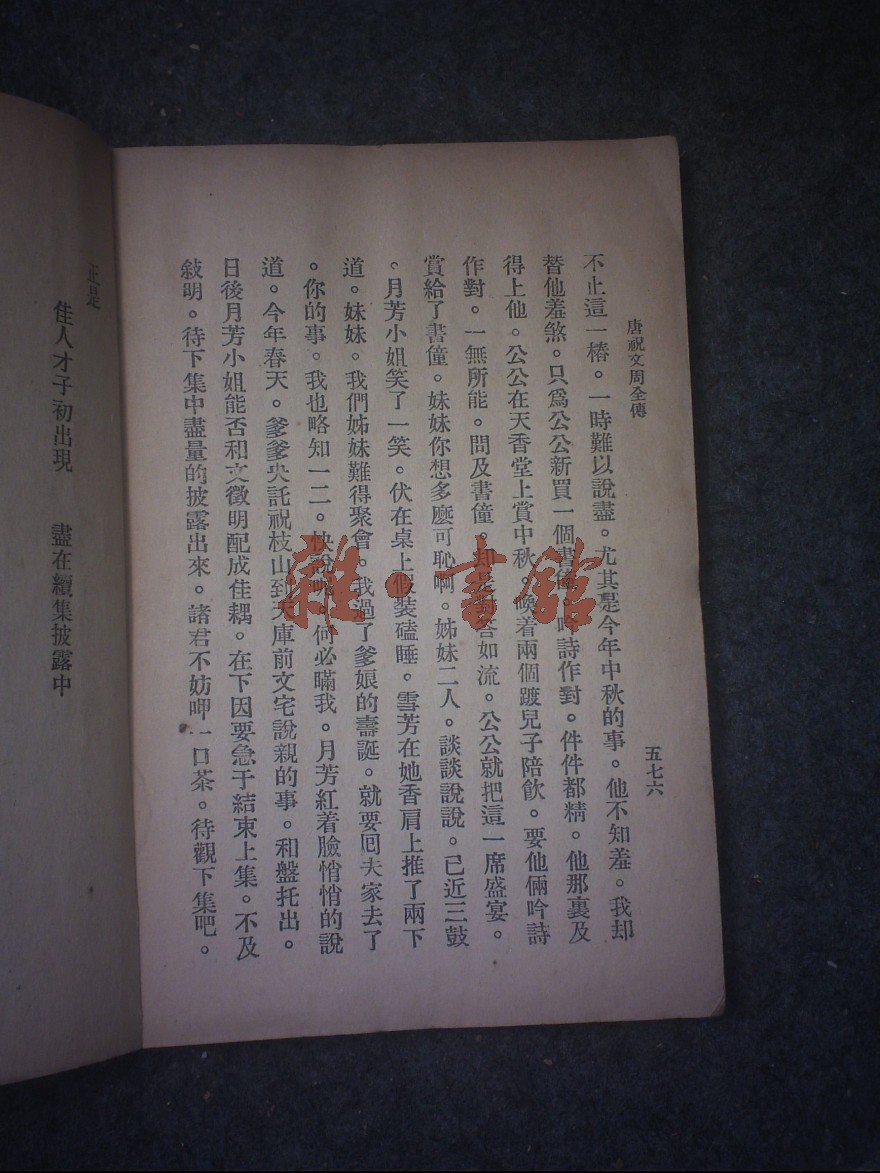 唐祝文周全傳
五七六
不止這一樁。一時難以說盡。尤其是今年中秋的事。他不知羞。我却
替他羞煞。只爲公公新買一個書僮。吟詩作對。件件都精。他那裏及
得上他。公公在天香堂上賞中秋。喚着兩個踱兒子陪飲。要他倆吟詩
作對。一無所能。問及書僮。却是對答如流。公公就把這一席盛宴。
賞給了書僮。妹妹你想多麼可恥啊。姊妹二人。談談說說。已近三鼓
。月芳小姐笑了一笑。伏在桌上假裝磕睡。雪芳在她香肩上推了兩下
道。妹妹。我們姊妹難得聚會。我過了爹娘的壽誕。就要囘夫家去了
。你的事。我也略知一二。快說呢。何必瞞我。月芳紅着臉悄悄的說
道。今年春天。爹爹央託祝枝山到天庫前文宅說親的事。和盤托出。
日後月芳小姐能否和文徵明配成佳耦。在下因要急于結束上集。不及
敍明。待下集中盡量的披露出來。諸君不妨呷一口茶。待觀下集吧。
正是
佳人才子初出現　盡在續集披露中
雜·書館